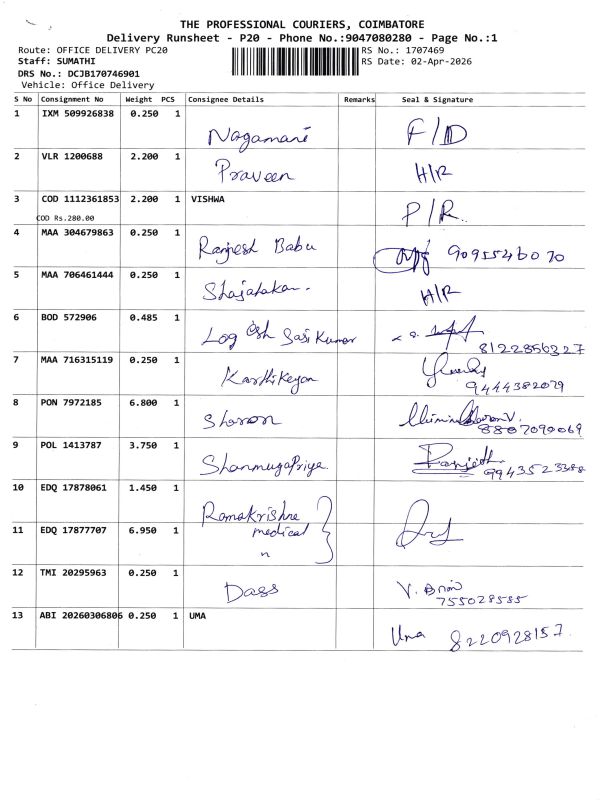 THE PROFESSIONAL COURIERS, COIMBATORE
Delivery Runsheet - P20 - Phone No.:9047080280 - Page No.:1
Route: OFFICE DELIVERY PC20
RS No.: 1707469
Staff: SUMATHI
RS Date: 02-Apr-2026
DRS No.: DCJB170746901
Vehicle: Office Delivery
S No Consignment No Weight PCS Consignee Details Remarks Seal & Signature
1 IXM 509926838 0.250 1
Nagamani F/D
2 VLR 1200688 2.200 1
Praveen H/R
3 COD 1112361853 2.200 1 VISHWA
COD Rs.280.00
P/R
4 MAA 304679863 0.250 1
Ranjesh Babu 9095546070
5 MAA 706461444 0.250 1
H/R
6 BOD 572906 0.485 1
Sasi Kumar
8122856327
7 MAA 716315119 0.250 1
Karthikeyan
9444382079
8 PON 7972185 6.800 1
Sharon
8807090069
9 POL 1413787 3.750 1
Shanmugapriya Ranjeeth
9943523388
10 EDQ 17878061 1.450 1
Ramakrishna
medical
11 EDQ 17877707 6.950 1
12 TMI 20295963 0.250 1
Dass V.
755028585
13 ABI 20260306806 0.250 1 UMA
Uma 8220928157